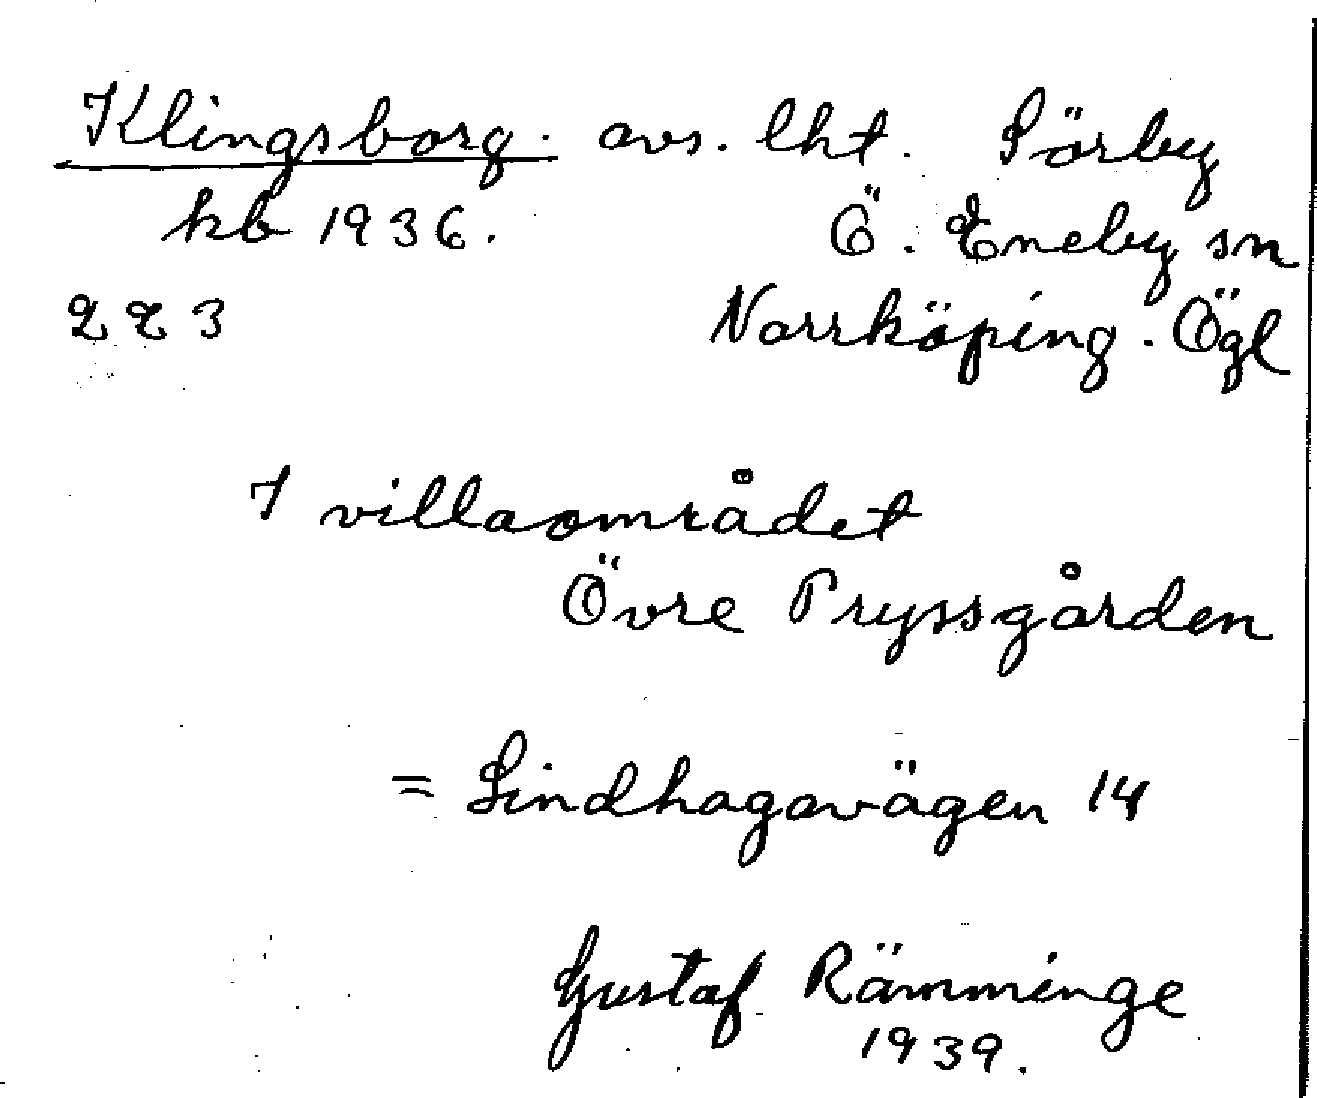 Klingsborg. avs. lht. Sörby
kb 1936. Ö. Eneby sn
223 Norrköping. Ögl
I villaområdet
Övre Pryssgården
= Lindhagavägen 14
Gustaf Rämminge
1939.